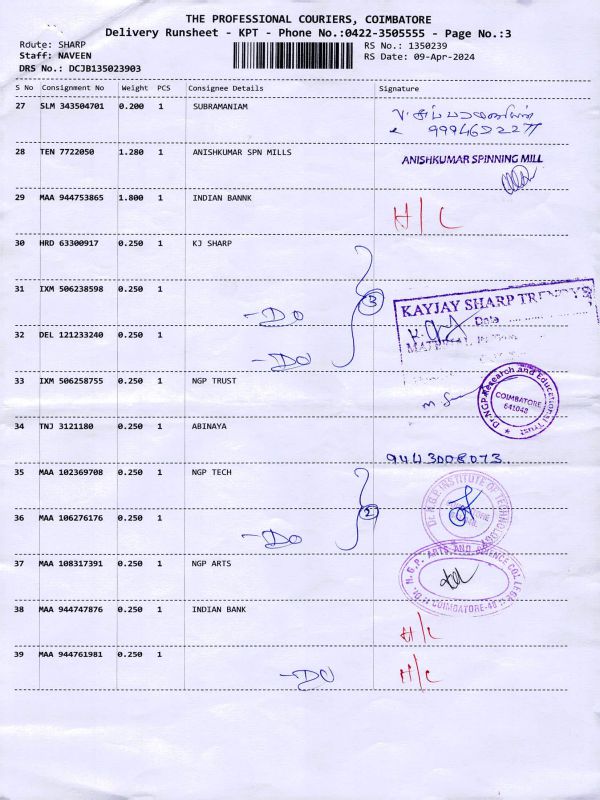 THE PROFESSIONAL COURIERS, COIMBATORE
Delivery Runsheet - KPT - Phone No.:0422-3505555 - Page No.:3
Route: SHARP RS No.: 1350239
Staff: NAVEEN RS Date: 09-Apr-2024
DRS No.: DCJB135023903
S No Consignment No Weight PCS Consignee Details Signature
27 SLM 343504701 0.200 1 SUBRAMANIAM
28 TEN 7722050 1.280 1 ANISHKUMAR SPN MILLS ANISHKUMAR SPINNING MILL
29 MAA 944753865 1.800 1 INDIAN BANNK H/C
30 HRD 63300917 0.250 1 KJ SHARP
31 IXM 506238598 0.250 1 -DO 3 KAYJAY SHARP TRENDYS
Date
32 DEL 121233240 0.250 1 -DO
33 IXM 506258755 0.250 1 NGP TRUST Dr.NGP Research and Educational Trust COIMBATORE 641048
34 TNJ 3121180 0.250 1 ABINAYA 9443008073
35 MAA 102369708 0.250 1 NGP TECH Dr. N.G.P. INSTITUTE OF TECHNOLOGY
36 MAA 106276176 0.250 1 -DO 2
37 MAA 108317391 0.250 1 NGP ARTS Dr. N.G.P. ARTS AND SCIENCE COLLEGE COIMBATORE-48
38 MAA 944747876 0.250 1 INDIAN BANK H/C
39 MAA 944761981 0.250 1 -DO H/C